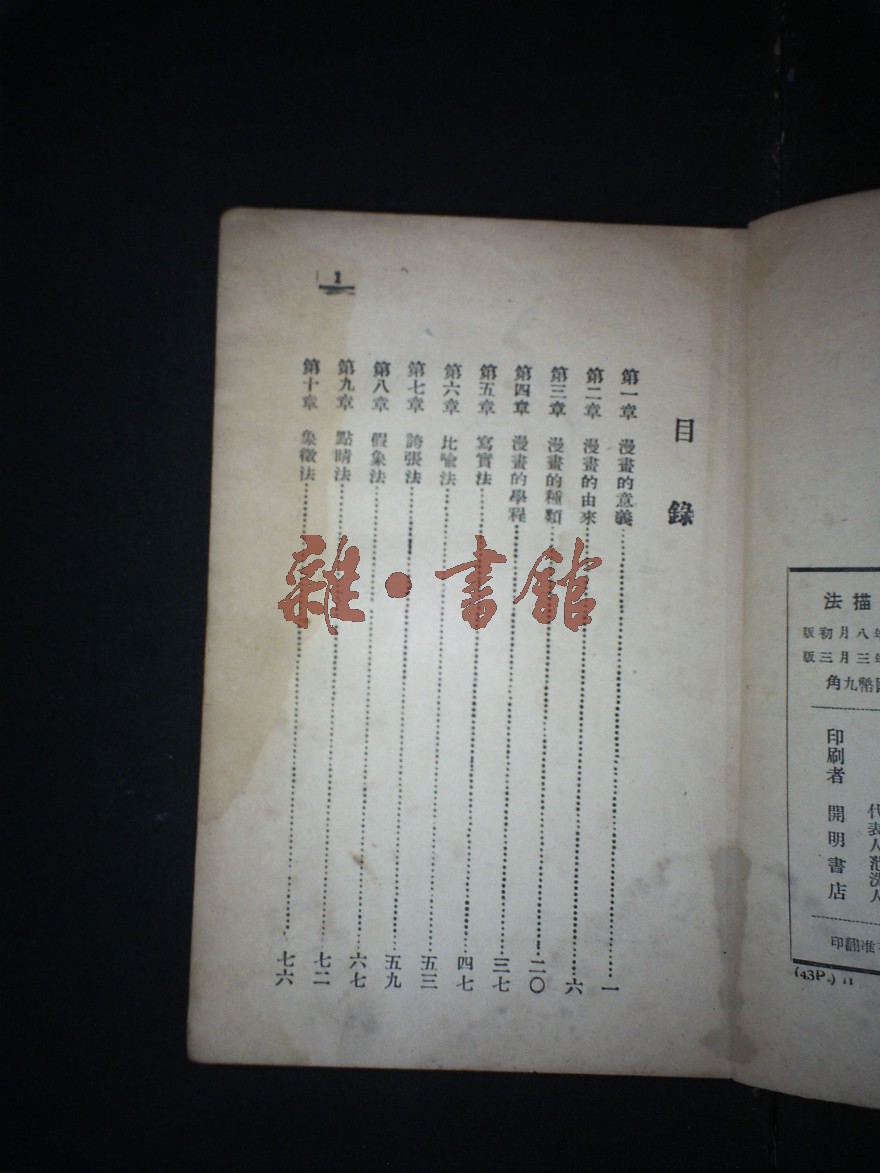 法描
版初月八年
版三月三年
角九幣國
印刷者 開明書店
代表人范洗人
印翻准
(43P.) H
目錄
第一章 漫畫的意義 一
第二章 漫畫的由來 六
第三章 漫畫的種類 二〇
第四章 漫畫的學程 三七
第五章 寫實法 四七
第六章 比喩法 五三
第七章 誇張法 五九
第八章 假象法 六七
第九章 點睛法 七二
第十章 象徵法 七六
1
雜·書館